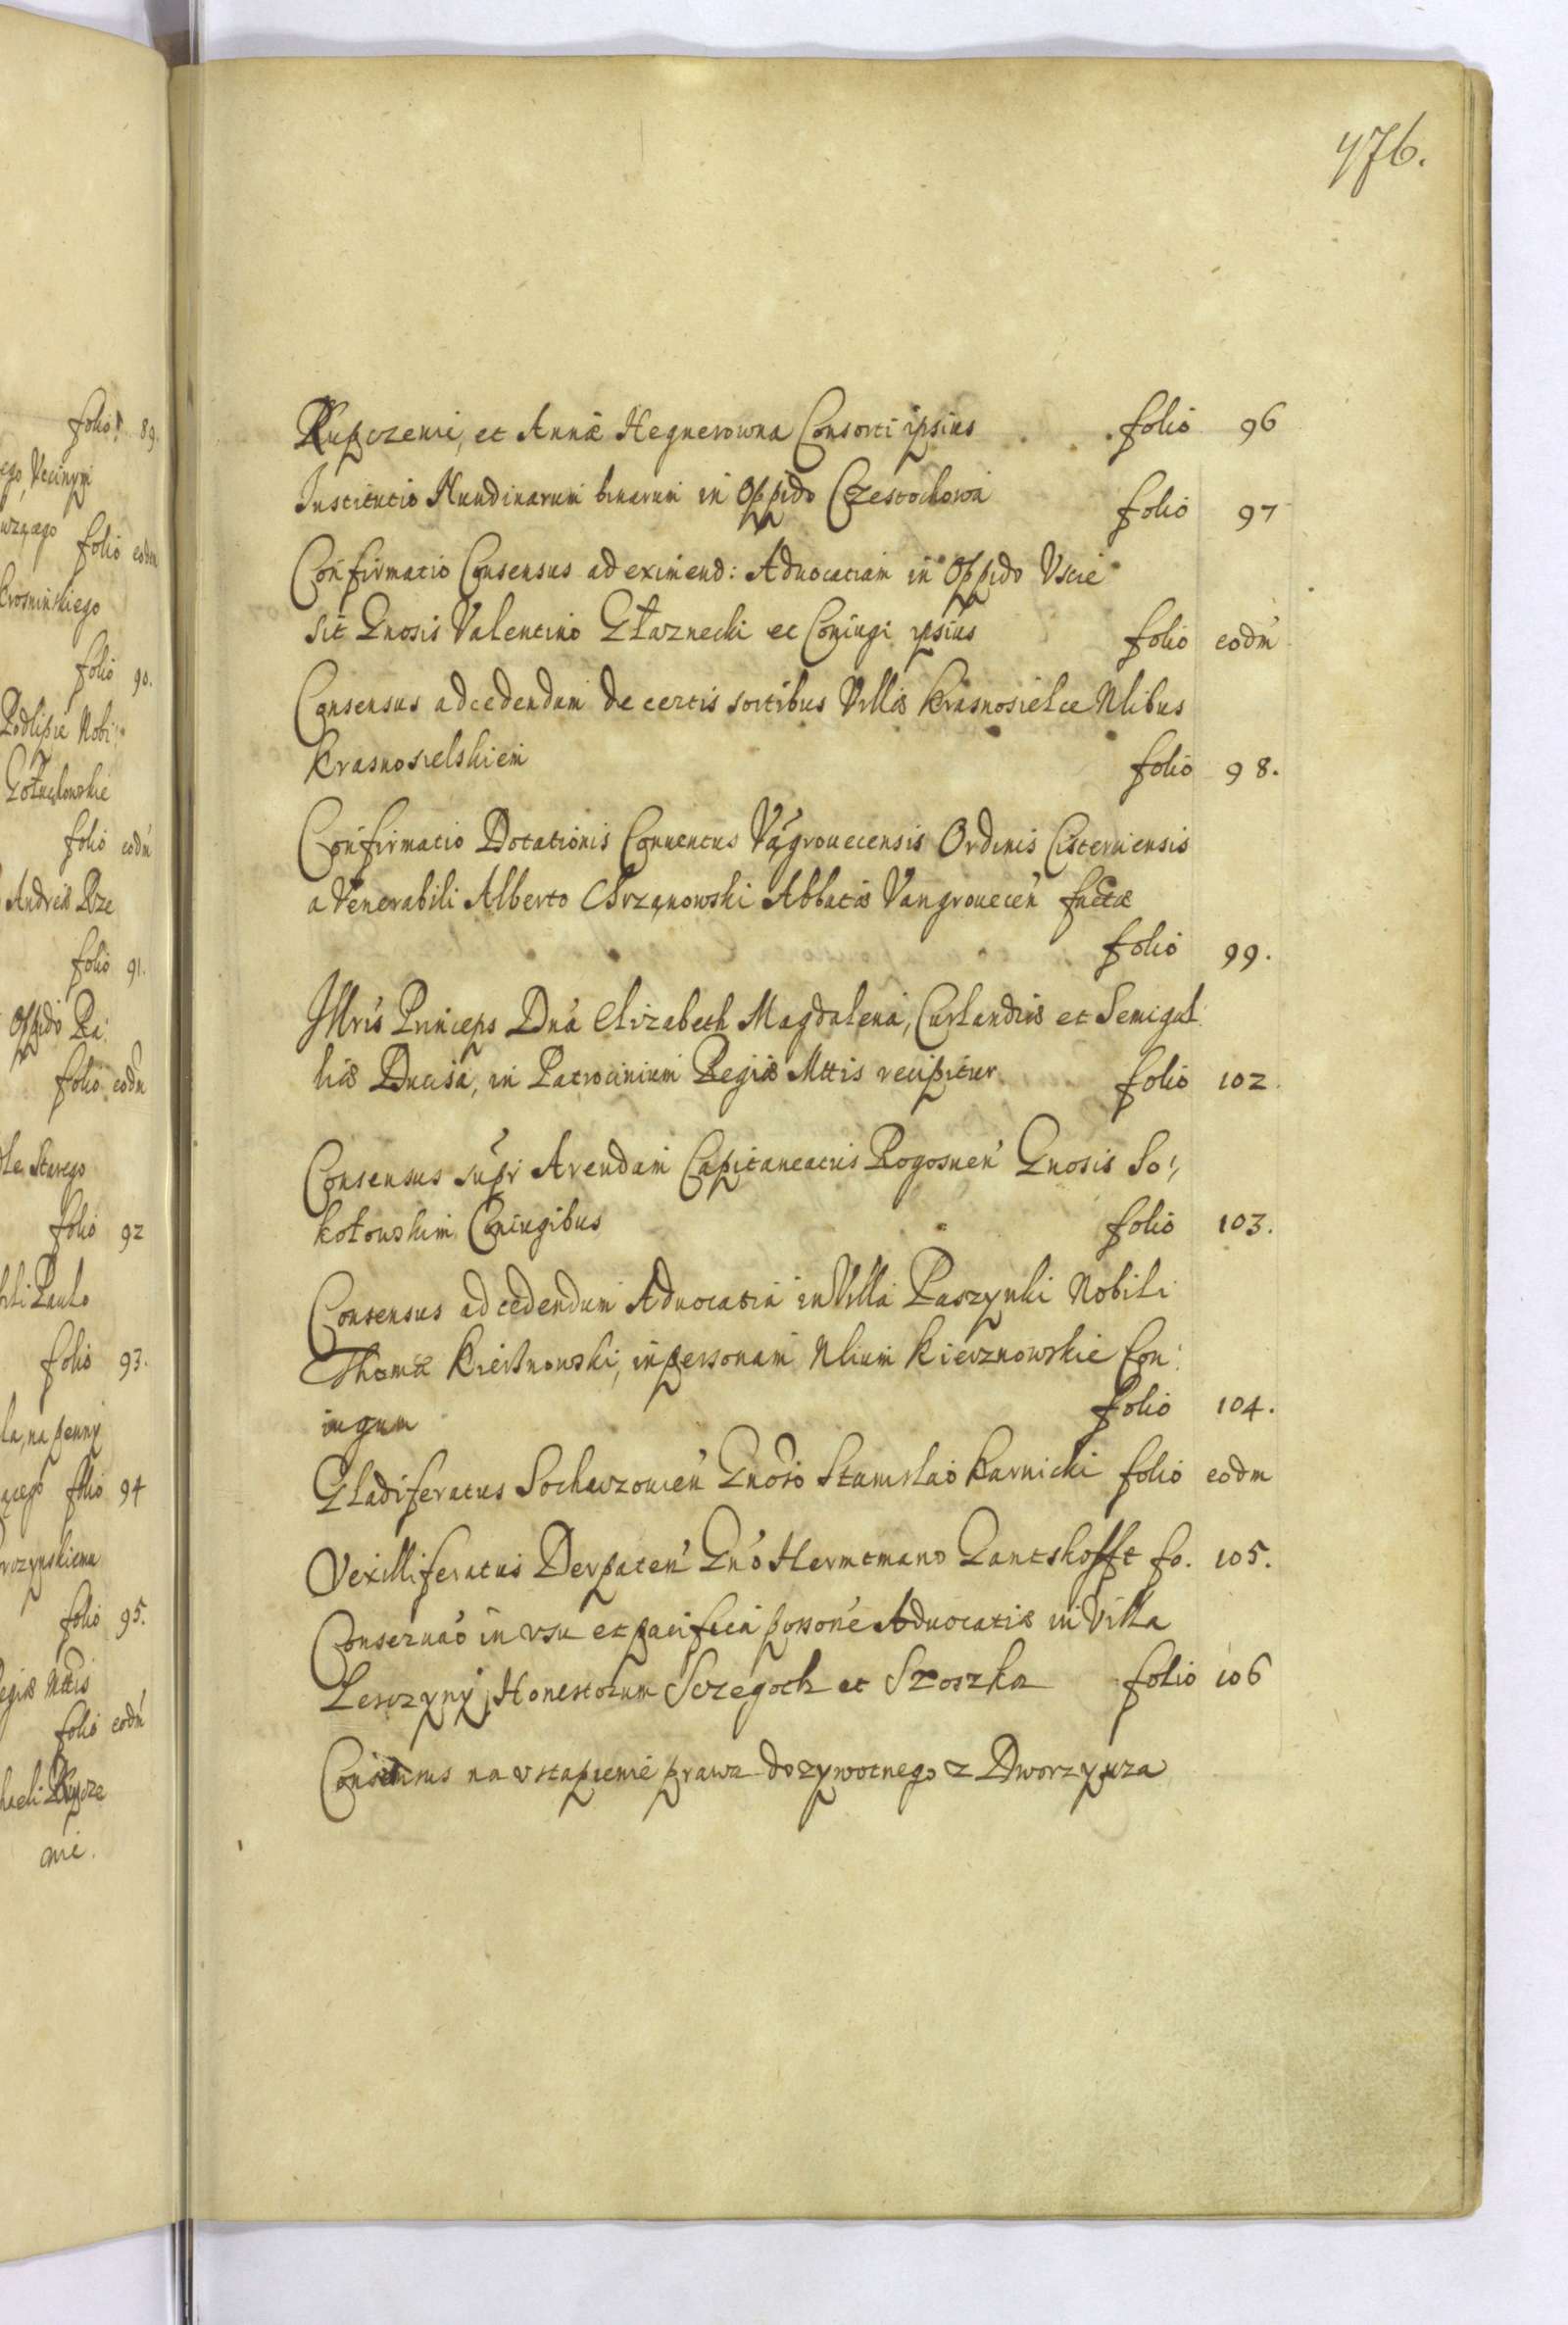 476.
folio 89.
ego, Vecinym
folio eodm
Krosninskiego
folio 90.
Podlipie Nobi:
folio eodm
Andreæ Prze
folio 91.
Oppido Ra:
folio eodm
Starego
folio 92
Paulo
folio 93.
la, na penny
folio 94
folio 95.
Regiæ Mttis
folio eodm
haeli Rupcze
nie.
Rupczenie, et Annæ Hegnerowna Consorti ipsius folio 96
Institutio Nundinarum binarum in Oppido Czestochowa folio 97
Confirmatio Consensus ad eximend: Aduocatiam in Oppido Vscie
sit Gnosis Valentino Głaznecki et Coniugi ipsius folio eodm
Consensus ad cedendam de certis sortibus Villæ Krasnosielce Nlibus
Krasnosielskiem folio 98.
Confirmatio Dotationis Conuentus Vągrouecensis Ordinis Cisterciensis
a Venerabili Alberto Chrząnowski Abbatæ Vangrouecen factæ
folio 99.
Illris Princeps Dna Elizabeth Magdalena, Curlandiæ et Semigal
liæ Ducisa, in Patrocinium Regiæ Mttis recipitur folio 102
Consensus supr Arendam Capitaneatus Rogosnen Gnosis So:
kołowskim Coniugibus folio 103.
Consensus ad cedendum Aduocatia in Villa Paszynki Nobili
Thomæ Kierznowski, in personam Nlium Kierznowskie Con:
iugum folio 104.
Gladiferatus Sochaczouien Gnoso Stanislao Karnicki folio eodm
Vexilliferatus Derpaten Gno Hermtmano Gantskofft fo. 105.
Conseruao in vsu et pacifica possone Aduocatiæ in Villa
Lesczyny Honestorum Sczegoch et Szoszka folio 106
Consensus na vstapienie prawa dozywotnego z Dworzyska